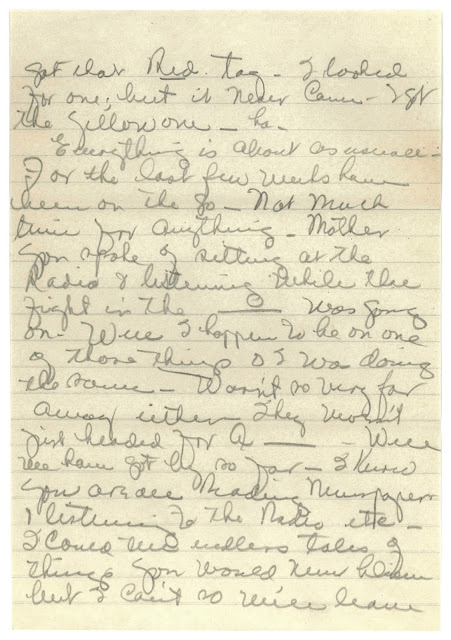 got that Red. tag - I looked
for one, but it never came - I got
the yellow one - ha -
Everything is about as usual -
For the last few weeks have
been on the go - Not much
time for anything - Mother
you spoke of sitting at the
Radio & listening while the
fight in the ____ was going
on - Well I happen to be on one
of those things & I was doing
the same - Wasn't so very far
away either They
just headed for a ____ - Well
we have got by so far - I know
you are all reading newspapers
& listening to the Radio etc -
I could tell endless tales of
things you would never believe
but I can't so we'll leave